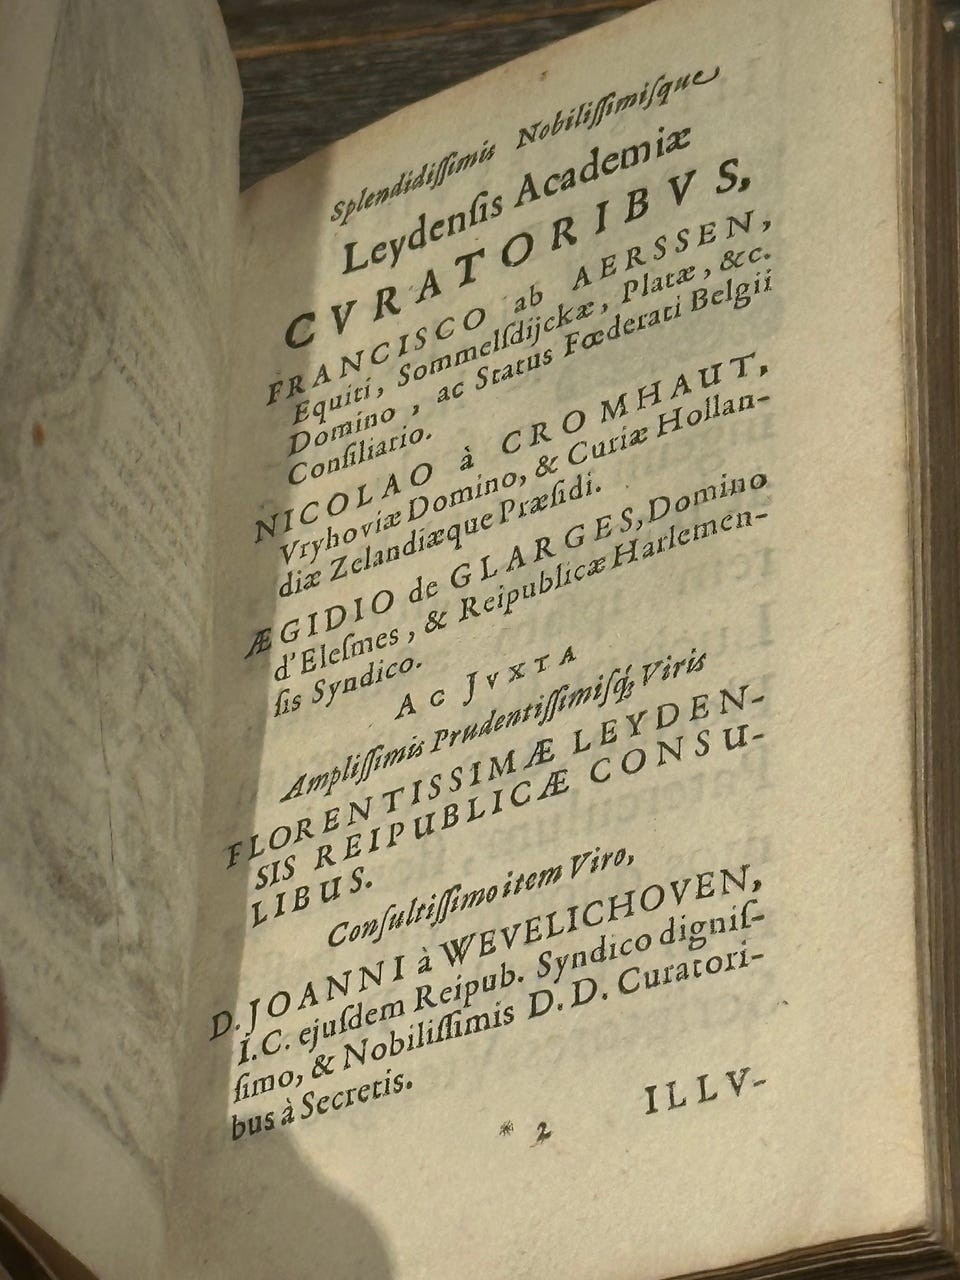 Splendidiſſimis Nobiliſſimiſque
Leydenſis Academiæ
CVRATORIBVS,
FRANCISCO ab AERSSEN,
Equiti, Sommelſdijckæ, Platæ, &c.
Domino, ac Status Fœderati Belgii
Conſiliario.
NICOLAO à CROMHAUT,
Vryhoviæ Domino, & Curiæ Hollan-
diæ Zelandiæque Præſidi.
ÆGIDIO de GLARGES, Domino
d'Eleſmes, & Reipublicæ Harlemen-
ſis Syndico.
AC JVXTA
Ampliſſimis Prudentiſſimiſq; Viris
FLORENTISSIMÆ LEYDEN-
SIS REIPUBLICÆ CONSU-
LIBUS.
Conſultiſſimo item Viro,
D. JOANNI à WEVELICHOVEN,
I.C. ejuſdem Reipub. Syndico digniſ-
ſimo, & Nobiliſſimis D. D. Curatori-
bus à Secretis.
* 2 ILLV-